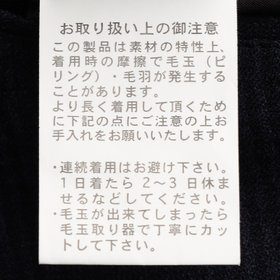 お取り扱い上の御注意
この製品は素材の特性上、
着用時の摩擦で毛玉（ピ
リング）・毛羽が発生する
ことがあります。
より長く着用して頂くために
下記の点にご注意の上お
手入れをお願いします。
・連続着用はお避け下さい。
１日着たら 2〜3 日休ま
せるなどしてください。
・毛玉が出来てしまったら
毛玉取り器で丁寧にカッ
トして下さい。